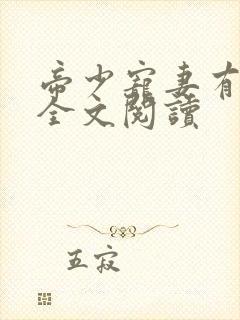 帝少寵妻有
全文閱讀
五寂